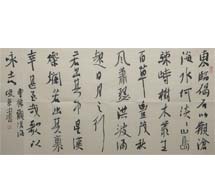 東臨碣石以觀滄
海水何淡淡山島
竦峙樹木叢生
百草豐茂秋
風蕭瑟洪波湧
起日月之行
燦爛若出其裏
幸甚至哉歌以
詠志
曹操觀滄海